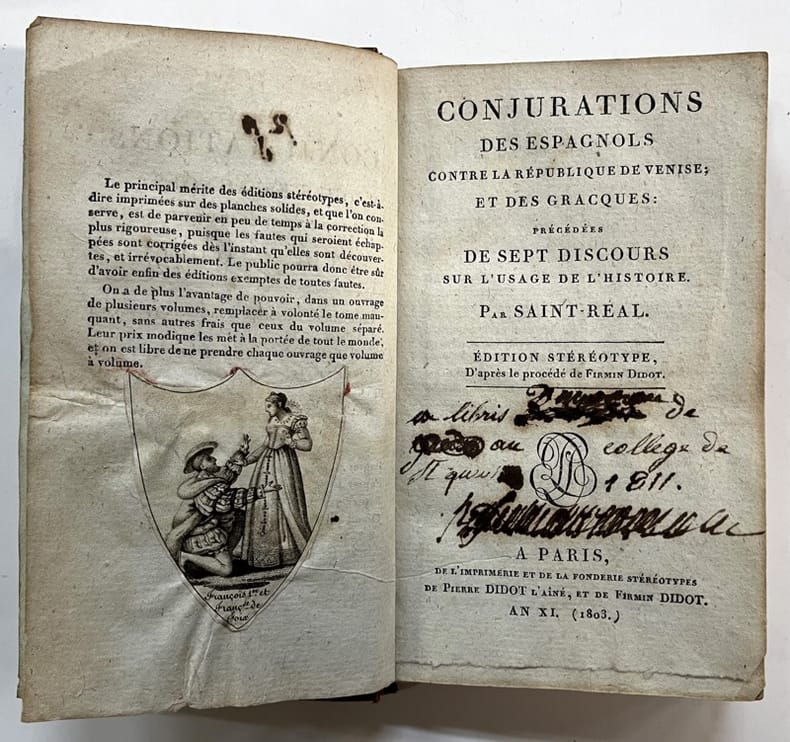 Le principal mérite des éditions stéréotypes, c'est-à-
dire imprimées sur des planches solides, et que l'on con-
serve, est de parvenir en peu de temps à la correction la
plus rigoureuse, puisque les fautes qui seroient échap-
pées sont corrigées dès l'instant qu'elles sont découver-
tes, et irrévocablement. Le public pourra donc être sûr
d'avoir enfin des éditions exemptes de toutes fautes.
On a de plus l'avantage de pouvoir, dans un ouvrage
de plusieurs volumes, remplacer à volonté le tome man-
quant, sans autres frais que ceux du volume séparé.
Leur prix modique les met à la portée de tout le monde,
et on est libre de ne prendre chaque ouvrage que volume
à volume.
François 1er et
Franç.se de
Foix
CONJURATIONS
DES ESPAGNOLS
CONTRE LA RÉPUBLIQUE DE VENISE;
ET DES GRACQUES:
PRÉCÉDÉES
DE SEPT DISCOURS
SUR L'USAGE DE L'HISTOIRE.
PAR SAINT-RÉAL.
ÉDITION STÉRÉOTYPE,
D'après le procédé de FIRMIN DIDOT.
ex libris de
au college de
St 1811.
A PARIS,
DE L'IMPRIMERIE ET DE LA FONDERIE STÉRÉOTYPES
DE PIERRE DIDOT L'AÎNÉ, ET DE FIRMIN DIDOT.
AN XI. (1803.)